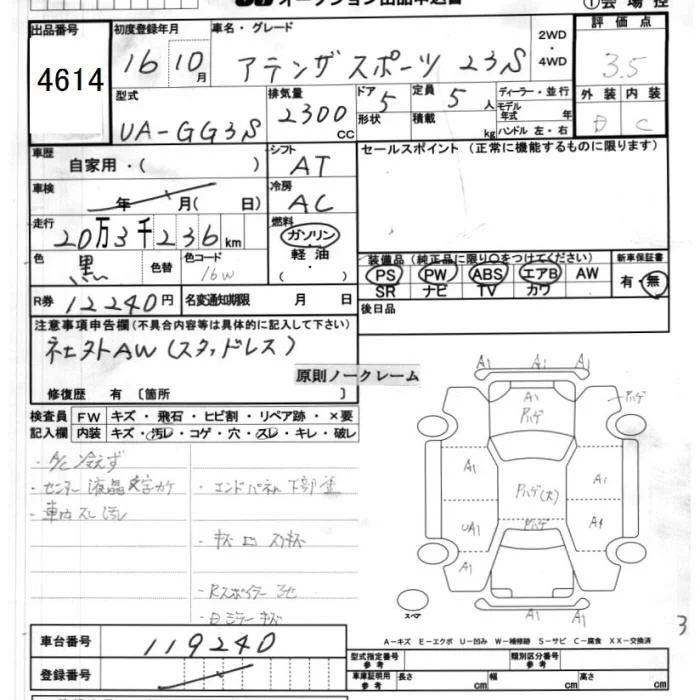 オークション出品申込書
①会場控
出品番号 初度登録年月 車名・グレード 2WD・4WD 評価点
4614 16 10月 アテンザスポーツ 23S 3.5
型式 排気量 ドア 定員 ディーラー・並行 外装 内装
UA-GG3S 2300 CC 5 5人 モデル年式 年 D C
形状 積載 kg ハンドル 左・右
車歴 自家用・( ) シフト AT セールスポイント(正常に機能するものに限ります)
車検 年 月( 日) 冷房 AC
走行 20万3千236km 燃料 ガソリン 軽油 ( ・ )
色 黒 色替 色コード 16W 装備品(純正品に限り○をつけてください) 新車保証書
PS PW ABS エアB AW 有・無
SR ナビ TV カワ
R券 12240円 名変通知期限 月 日 後日品
注意事項申告欄(不具合内容等は具体的に記入して下さい)
社外AW(スタッドレス)
原則ノークレーム
修復歴 有 〔箇所 〕
検査員 FW キズ・飛石・ヒビ割・リペア跡・×要
記入欄 内装 キズ・汚レ・コゲ・穴・スレ・キレ・破レ
・A/C冷えず
・センター液晶文字カケ ・エンドパネル下部塗
・車内スレ汚レ
・Rスポイラー
A1 A1 A1
A1 Pハゲ Pハゲ
A1 Pハゲ(大) A1
UA1 Pハゲ A1
A1
スペア A1 A1 A1
3
A-キズ E-エクボ U-凹み W-補修跡 S-サビ C-腐食 XX-交換済
車台番号 119240
型式指定番号 参考 類別区分番号 参考
登録番号 車庫証明用 参考 長さ cm 幅 cm 高さ cm